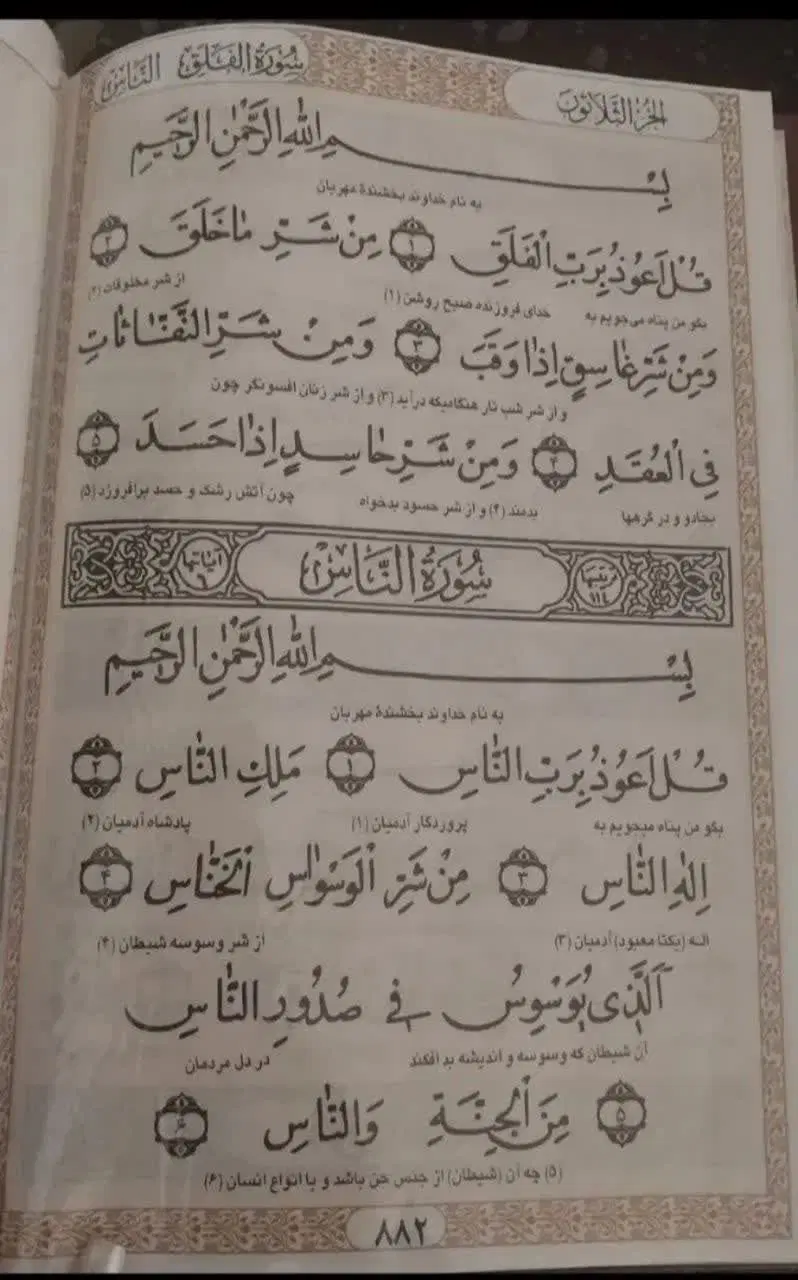 الجزء الثلاثون سورة الفلق الناس
بِسْمِ اللّٰهِ الرَّحْمٰنِ الرَّحِيمِ
به نام خداوند بخشندهٔ مهربان
قُلْ اَعُوذُ بِرَبِّ الْفَلَقِ ۱ مِنْ شَرِّ مَا خَلَقَ ۲
بگو من پناه می‌جویم به خدای فروزنده صبح روشن (۱) از شر مخلوقات (۲)
وَمِنْ شَرِّ غَاسِقٍ اِذَا وَقَبَ ۳ وَمِنْ شَرِّ النَّفَّاثَاتِ
و از شر شب تار هنگامیکه درآید (۳) و از شر زنان افسونگر چون
فِي الْعُقَدِ ۴ وَمِنْ شَرِّ حَاسِدٍ اِذَا حَسَدَ ۵
بجادو و در گرهها بدمند (۴) و از شر حسود بدخواه چون آتش رشک و حسد برافروزد (۵)
رتبتها ۱۱٤ سُورَةُ النَّاسِ آیاتها ٦
بِسْمِ اللّٰهِ الرَّحْمٰنِ الرَّحِيمِ
به نام خداوند بخشندهٔ مهربان
قُلْ اَعُوذُ بِرَبِّ النَّاسِ ۱ مَلِكِ النَّاسِ ۲
بگو من پناه میجویم به پروردگار آدمیان (۱) پادشاه آدمیان (۲)
اِلٰهِ النَّاسِ ۳ مِنْ شَرِّ الْوَسْوَاسِ الْخَنَّاسِ ۴
اله (یکتا معبود) آدمیان (۳) از شر وسوسه شیطان (۴)
اَلَّذِي يُوَسْوِسُ فِي صُدُورِ النَّاسِ
آن شیطان که وسوسه و اندیشه بد افکند در دل مردمان
۵ مِنَ الْجِنَّةِ وَالنَّاسِ ۶
(۵) چه آن (شیطان) از جنس جن باشد و یا انواع انسان (۶)
۸۸۲